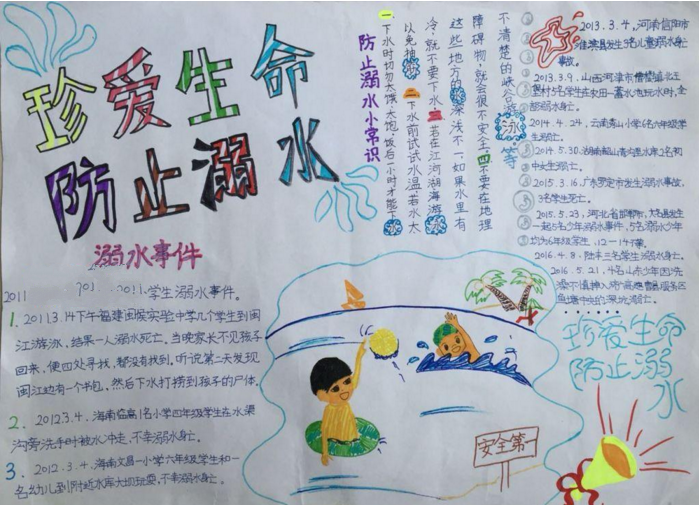 珍爱生命
防止溺水
溺水事件
2011
学生溺水事件。
1. 20113.14下午福建闽侯实验中学几个学生到闽
江游泳,结果一人溺水死亡。当晚家长不见孩子
回来,便四处寻找,都没有找到。听说第二天发现
闽江边有一个书包,然后下水打捞到孩子的尸体。
2. 20123.4.海南临高1名小学四年级学生在水渠
沟旁洗手时被水冲走,不幸溺水身亡。
3. 2012.3.4.海南文昌一小学六年级学生和一
名幼儿到附近水库大坝玩耍,不幸溺水身亡。
防止溺水小常识
一.下水时切勿太饿、太饱。饭后一小时才能下水
以免抽 二.下水前试试水温,若水太
冷,就不要下水 三.若在江河湖海游
这些地方的水深浅不一如果水里有
障碍物,就会很不安全 四不要在地理
不清楚的峡谷游泳等
2013.3.4,河南信阳市
发生 名儿童溺水身亡
事故。
2013.3.9,山西河津市僧楼镇北王
堡村5名学生在农田一蓄水池玩水时,全
部溺水身亡。
2014.4.24,云南 山小学6名六年级学
生溺亡。
2014.5.30.湖南 水库2名初
中女生溺亡。
2015.3.16,广东罗定市发生溺水事故,
3名学生死亡。
2015.5.23,河北省邯郸市,大名县发生
一起5名少年溺水事件,5名溺水少年
均为6年级学生,12—14岁。
2016.4.8,陆丰三名学生溺水身亡。
2016.5.21,4名山东少年因洗
澡不慎掉入 高速 服务区
鱼塘中央的深坑溺亡。
珍爱生命
防止溺
水
安全第一